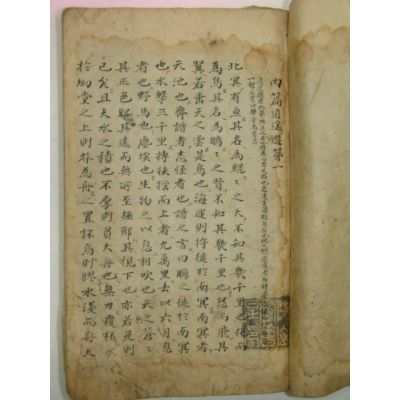 內篇逍遙遊第一
北冥有魚其名為鯤〻之大不知其幾千里也化而
為鳥其名為鵬〻之背不知其幾千里也怒而飛其
翼若垂天之雲是鳥也海運則將徙於南冥南冥者
天池也齊諧者志怪者也諧之言曰鵬之徙於南冥
也水擊三千里摶扶搖而上者九萬里去以六月息
者也野馬也塵埃也生物之以息相吹也天之蒼〻
其正色耶其遠而無所至極耶其視下也亦若是則
已矣且夫水之積也不厚則負大舟也無力覆杯水
於坳堂之上則芥為舟之置杯焉則膠水淺而舟大